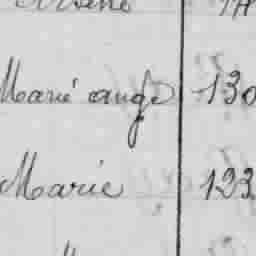 Marie ange 130
Marie 123